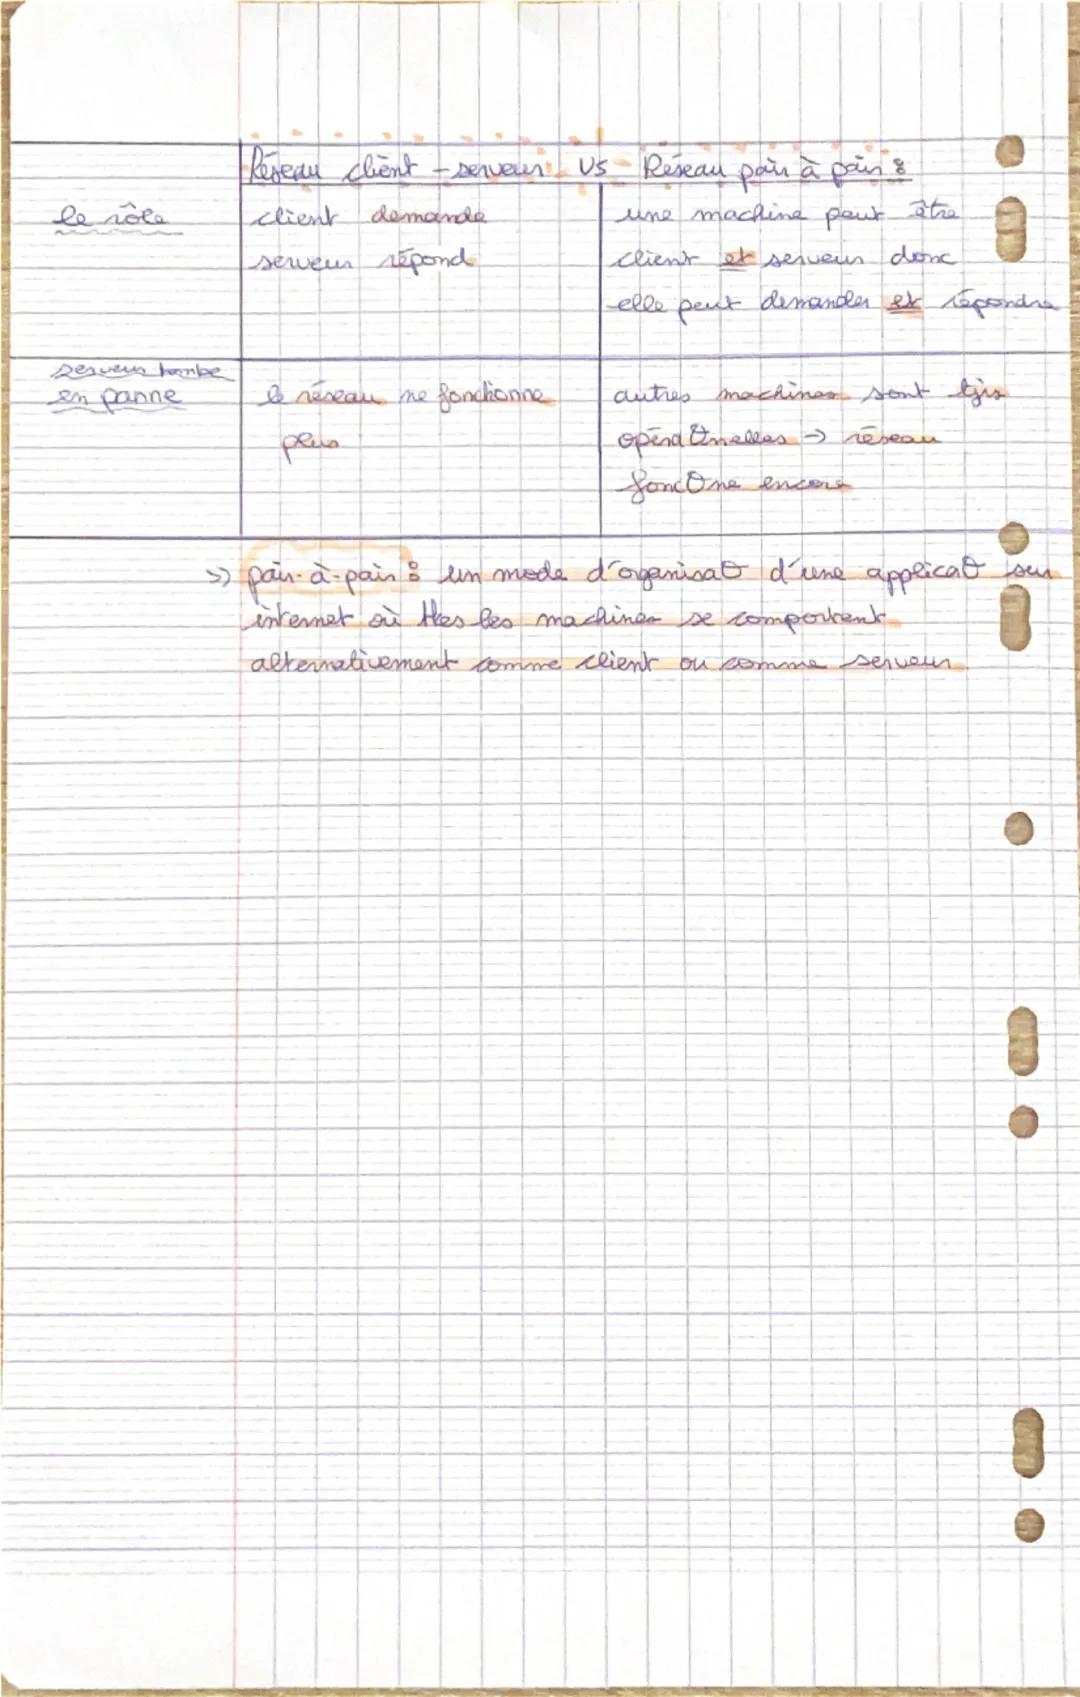 Réseau client - serveur VS Réseau pair à pair :
le rôle
client demande
serveur répond
une machine peut être
client et serveur donc
elle peut demander et répondre
serveur tombe
en panne
le réseau ne fonctionne
plus
autres machines sont tjrs
opéraθnelles → réseau
foncθne encore
=> pair-à-pair : un mode d'organisaθ d'une applicaθ sur
internet où ttes les machines se comportent
alternativement comme client ou comme serveur.